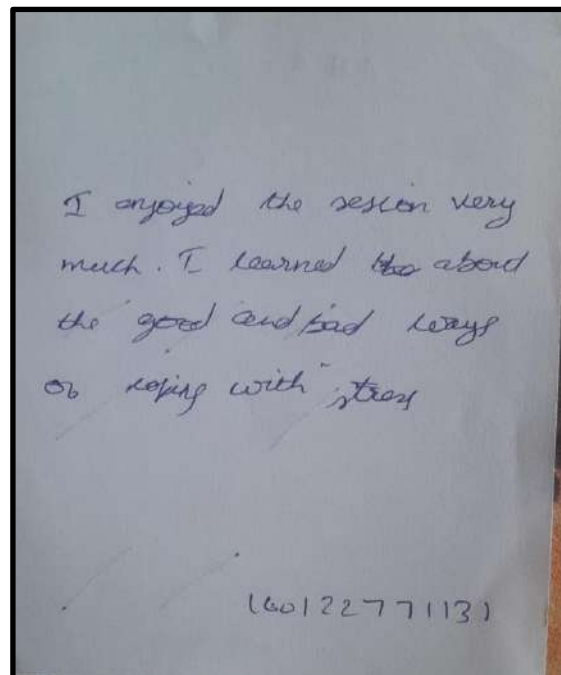 I enjoyed the sesion very
much. I learned about
the good and bad ways
of coping with stress
160122771131